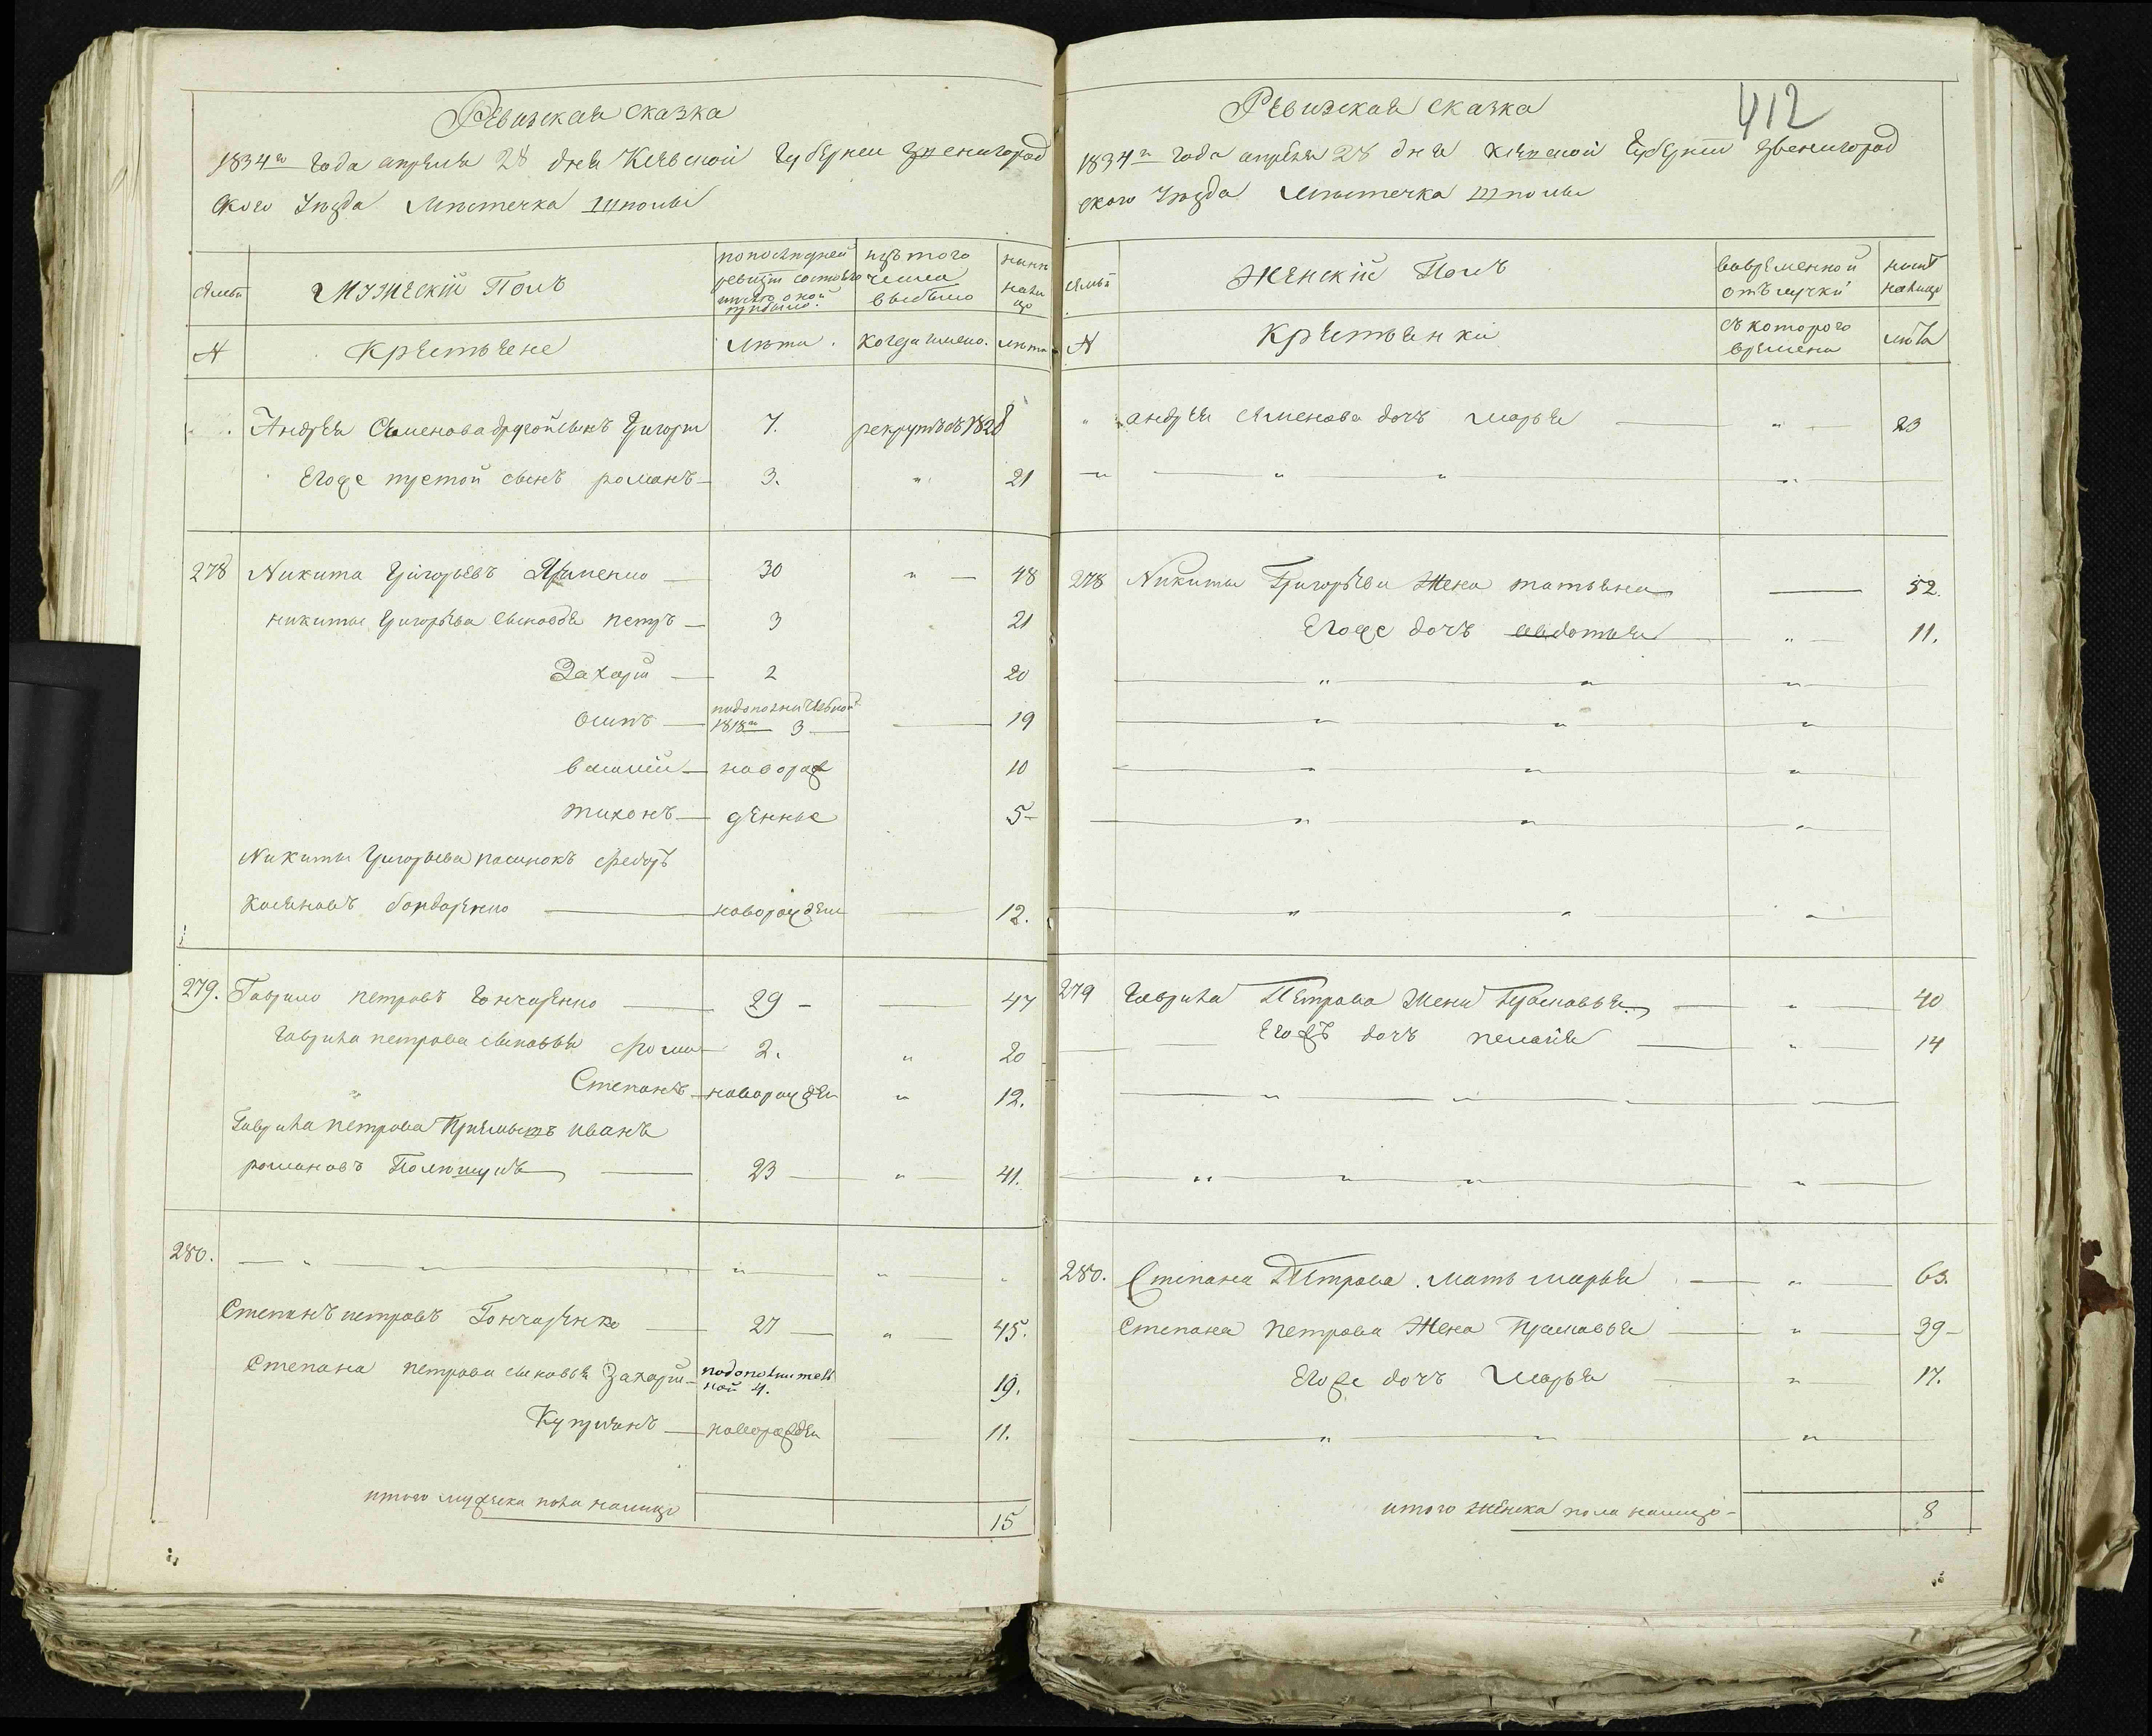 Ревизская сказка
1834го года апреля 28 дня Киевской губернии Звенигород
ского Уезда Местечка Шполы
семьи
Мужеский Полъ
по последней ревизии состояло
изъ того числа выбыло
ныне на лицо
№
Крестьяне
Лета.
Когда имено.
лета
Андрея Семенова другой сынъ Григори 7. рекрутъ въ 1828
Егоже третой сынъ романъ 3. " 21
278 Никита Григорьевъ 30 " 48
никиты Григорьева сыновья петръ 3 21
Захари 2 20
осипъ по дополнительной 1818го 3 19
василий новорож 10
тихонъ денные 5
Никиты Григорьева пасинокъ Федоръ
бондаренко новорожден 12.
279. Гаврило петровъ Гончаренко 29 47
Гаврила петрова сыновья 2. " 20
Степанъ новорожден " 12.
Гаврила петрова Приемышъ иванъ
романовъ 23 " 41.
280. " " " " "
Степанъ петровъ Гончаренко 27 " 45.
Степана петрова сыновья Захари по дополнитель ной 4. 19.
Куприянъ новорожден 11.
итого мужеска пола налицо 15
412
Ревизская сказка
1834го года апреля 28 дня Киевской Губернии Звенигород
ского Уезда Местечка Шполы
семьи
Женский Полъ
во временной отълучки
ныне налицо
№
Крестьянки
съ которого времени
лета
" андрея семенова дочъ марья " 23
" " " "
278 Никиты Григорьева Жена татьяна 52.
Егоже дочъ авдотья " 11.
" " "
" " "
" " "
" " "
" " "
279 Гаврила Петрова Жена Прасковья " 40
Егожъ дочъ пелагия " 14
" "
" " " "
280. Степана Петрова мать марья " 63.
Степана петрова Жена Прасковья " 39
Егоже дочъ Марья " 17.
" " "
итого женска пола налицо 8